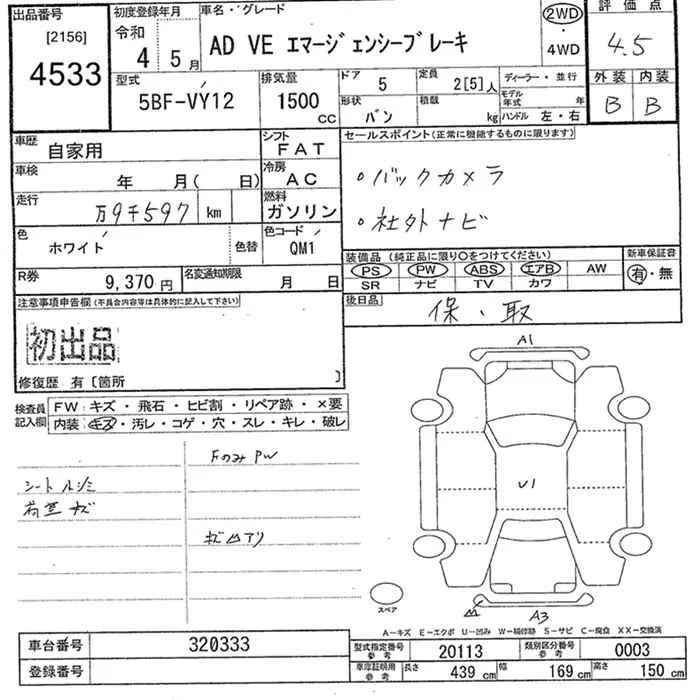 出品番号
[2156]
4533
初度登録年月
令和
4年 5月
車名・グレード
AD VE エマージェンシーブレーキ
2WD
・
4WD
評価点
4.5
外装 内装
B B
型式
5BF-VY12
排気量
1500
cc
ドア 5
定員 2[5]人
形状 バン
積載 kg
ディーラー・並行
モデル年式 年
ハンドル 左・右
車歴
自家用
シフト
FAT
車検
年 月( 日)
冷房
AC
走行
万9千597 km
燃料
ガソリン
色
ホワイト
色替
色コード
QM1
R券
9,370円
名変通知期限
月 日
セールスポイント(正常に機能するものに限ります)
。バックカメラ
。社外ナビ
装備品(純正品に限り○をつけてください)
PS PW ABS エアB AW
SR ナビ TV カワ
新車保証書
有・無
後日品
保・取
注意事項申告欄(不具合内容等は具体的に記入して下さい)
初出品
修復歴 有〔箇所 〕
検査員記入欄
FW: キズ・飛石・ヒビ割・リペア跡・×要
内装: キズ・汚レ・コゲ・穴・スレ・キレ・破レ
FのみPW
シート
キズ
A1
U1
A3
スペア
A-キズ E-エクボ U-凹み W-補修跡 S-サビ C-腐食 XX-交換済
車台番号
320333
登録番号
型式指定番号 参考
20113
類別区分番号 参考
0003
車庫証明用 参考
長さ 439cm
幅 169cm
高さ 150cm